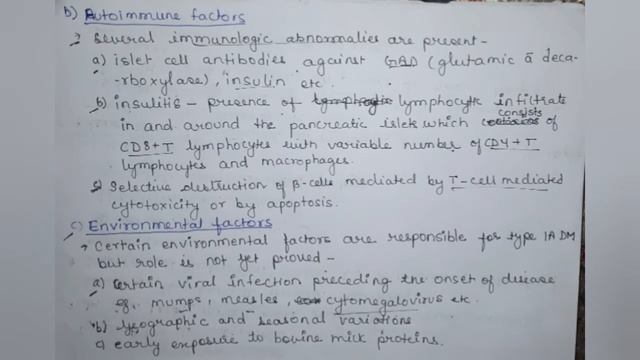 b) Autoimmune factors
→ Several immunologic abnormalies are present -
a) islet cell antibodies against GAD (glutamic ā deca-
-rboxylase), insulin etc
b) insulitis - presence of lymphocytic infiltrate
in and around the pancreatic islets which consists of
CD8+T lymphocytes with variable number of CD4+T
lymphocytes and macrophages.
c) Selective destruction of β-cells mediated by T-cell mediated
cytotoxicity or by apoptosis.
c) Environmental factors
→ Certain environmental factors are responsible for type 1A DM
but role is not yet proved -
a) Certain viral infection preceding the onset of disease
eg. mumps, measles, cytomegalovirus etc.
b) Geographic and seasonal variations
c) early exposure to bovine milk proteins.